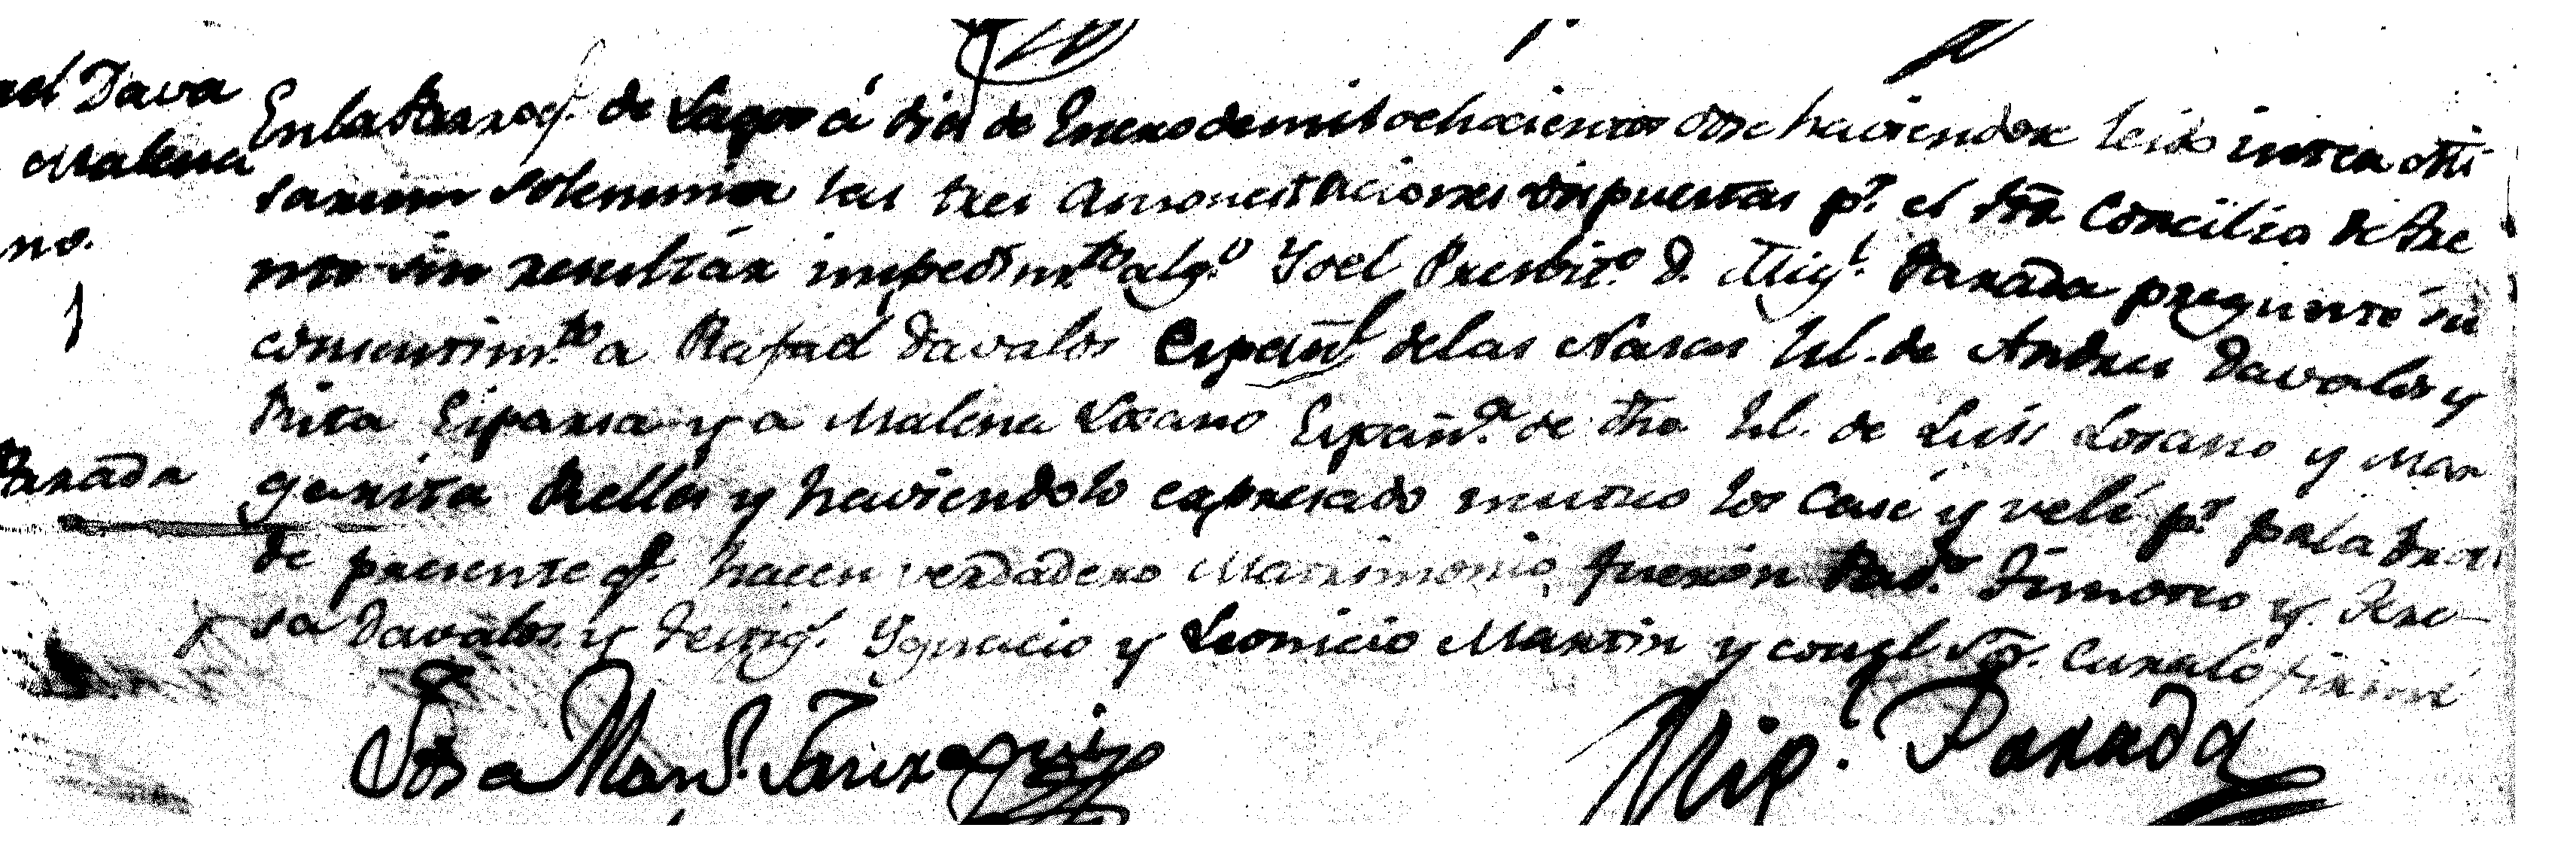 el Dava
Malena
no.
Parada
En la Parroq.ª de Lagos á dias de Enero de mil ochocientos dose haviendose leido inter Mi
sarum solemnia las tres Amonestaciones dispuestas p.r el Sto Concilio de Tre
nto sin resultár impedim.to alg.o Yo el Presbit.o D. Mig.l Paráda pregunté su
consentim.to a Rafael Davalos Españ.l de las Navas hl. de Andres Davalos y
Rita Esparsa y a Malena Losano Españ.a de dha hl. de Luis Losano y Mar
garita Tella y haviendolo expresado mutuo los Casé y velé p.r palabras
de presente q.e hacen verdadero Matrimonio, fueron Pad.s Timoteo y Tere
sa Davalos y testig.s Ygnacio y Leonicio Martin y con el Sõr. Cura lo firmé
Mig.l Parada